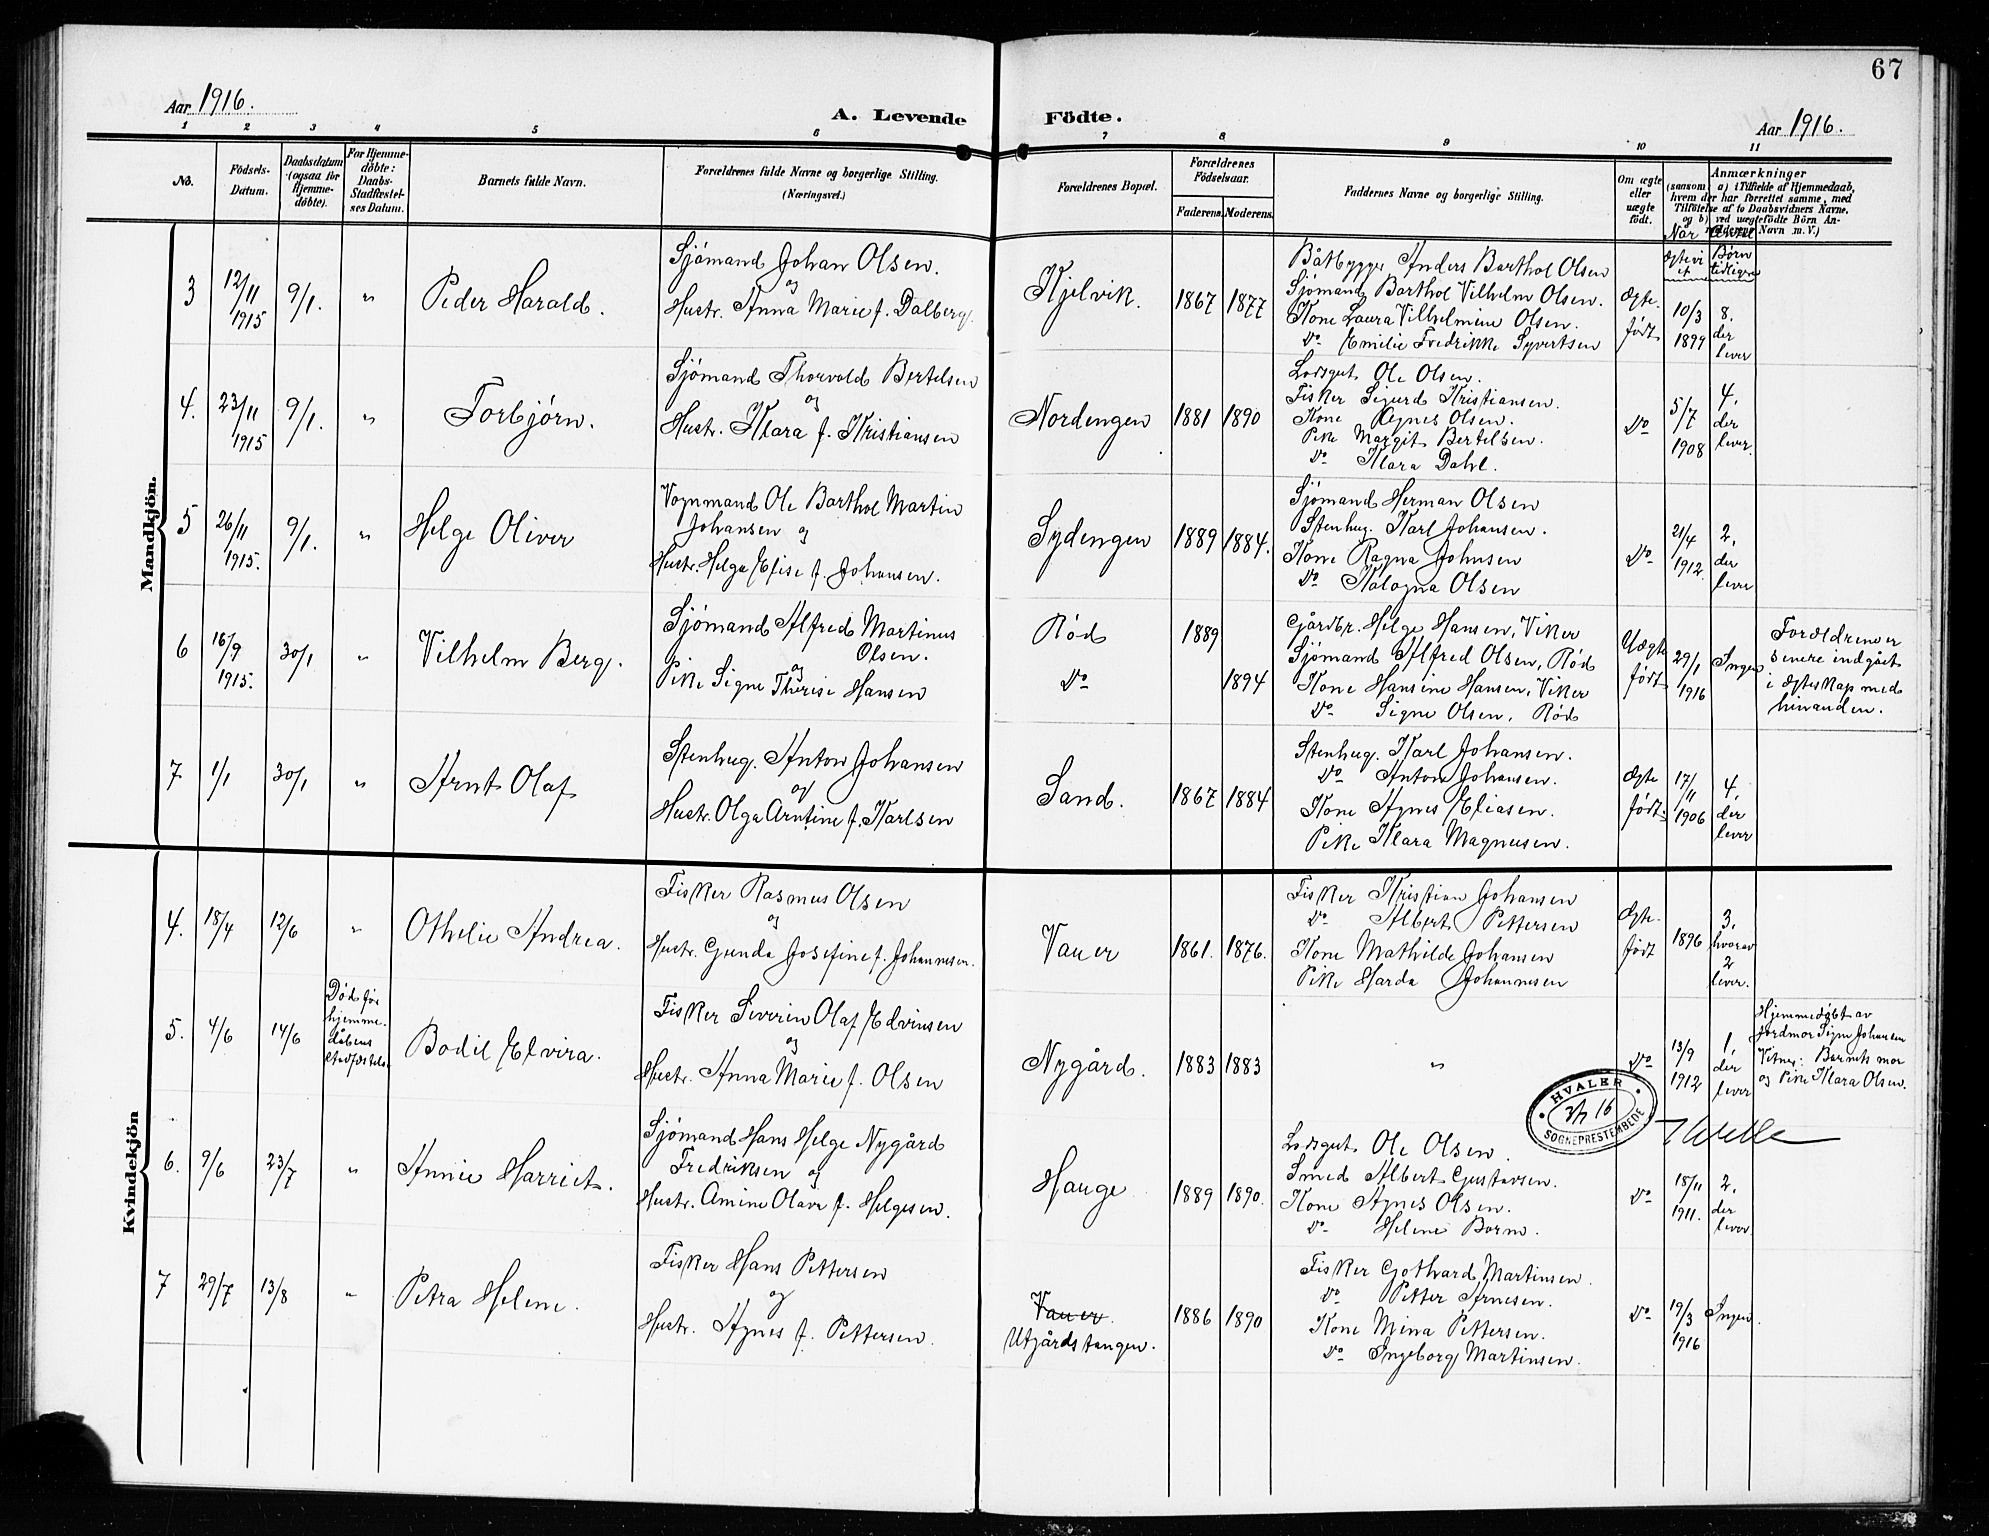 67
Aar 1916.
A. Levende Födte.
Aar 1916.
1 2 3 4 5 6 7 8 9 10 11
No.
Födsels-Datum.
Daabsdatum (ogsaa for Hjemmedöbte).
For Hjemmedöbte: Daabs-Stadfæstelses Datum.
Barnets fulde Navn.
Forældrenes fulde Navne og borgerlige Stilling.
(Næringsvei.)
Forældrenes Bopæl.
Forældrenes Födselsaar.
Faderens. Moderens.
Faddernes Navne og borgerlige Stilling.
Om ægte eller uægte født.
Anmærkninger
(saasom a) i Tilfælde af Hjemmedaab,
hvem der har forrettet samme, med
Tilföielse af to Daabsvidners Navne.
og b) ved uægtefödte Börn An-
Navn m. V.)
Når ægtevi et
Antal Børn tidligere
Mandkjön.
3 12/11 1915 9/1. " Peder Harald.
Sjömand Johan Olsen.
og
Hustr. Anna Marie f. Dalberg.
Kjelvik. 1867 1877
Båtbygger Anders Barthol Olsen
Sjömand Barthol Vilhelm Olsen.
Kone Laura Vilhelmine Olsen.
Do Emilie Fredrikke Syvertsen
Ægte født 10/3 1899 8. der lever
4. 23/11 1915 9/1. " Torbjørn.
Sjömand Thorvald Bertelsen
og
Hustr. Klara f. Kristiansen
Nordengen 1881 1890
Lodsgut Ole Olsen.
Fisker Sigurd Kristiansen.
Kone Agnes Olsen.
Pike Margit Bertelsen.
Do Klara Dahl.
Do 5/7 1908 4. der lever.
5 26/11 1915. 9/1. " Helge Oliver
Vognmand Ole Barthol Martin
Johansen og
Hustr. Helga Elise f. Johansen.
Sydengen 1889 1884.
Sjömand Herman Olsen
Stenhug. Karl Johansen.
Kone Ragna Johnsen
Do Kalogna Olsen
Do 21/4 1912. 2. der lever
6 16/9 1915. 30/1 " Vilhelm Berg.
Sjömand Alfred Martinus
Olsen.
og
Pike Signe Therese Hansen
Rød 1889
Do 1894
Gårdbr. Helge Hansen, Viker
Sjömand Alfred Olsen, Rød
Kone Hansine Hansen, Viker
Do Signe Olsen, Rød
Uægte født 29/1 1916 Ingen
Forældrene er
senere indgået
i ægteskap med
hinanden.
7 1/1 30/1 " Arnt Olaf
Stenhug. Anton Johansen
og
Hustr. Olga Arntine f. Karlsen
Sand. 1867 1884
Stenhug. Karl Johansen.
Do Anton Johansen.
Kone Agnes Eliasen.
Pike Klara Magnusen.
Ægte født. 17/11 1906 4. der lever
Kvindekjön
4. 18/4 12/6 " Othelie Andrea.
Fisker Rasmus Olsen
og
Hustr. Gunda Josefine f. Johannesen.
Vauer 1861. 1876.
Fisker Kristian Johansen
Do Albert Pettersen
Kone Mathilde Johansen
Pike Harda Johannesen
Ægte født 1896 3. hvorav 2 lever.
5. 4/6 14/6 Død før hjemmedåbens stadfæstelse Bodil Elvira.
Fisker Severin Olaf Edvinsen
og
Hustr. Anna Marie f. Olsen
Nygård. 1883 1883
"
Do 13/9 1912 1. der lever
Hjemmedøbt av
jordmor Signe Johansen
Vitner: Barnets mor
og Pike Klara Olsen.
HVALER
SOGNEPRESTEMBEDE
6. 9/6 23/7 " Annie Harriet.
Sjömand Hans Helge Nygård
Fredriksen og
Hustr. Amine Olava f. Helgesen.
Hauge 1889 1890.
Lodsgut Ole Olsen.
Smed Albert Gustavsen.
Kone Agnes Olsen.
Do Helene Bornø.
Do 18/11 1911. 2. der lever
7 29/7 13/8 " Petra Helene.
Fisker Hans Pettersen
og
Hustr. Agnes f. Pettersen.
Vauer.
Utgårdstangen. 1886 1890
Fisker Gothard Martinsen.
Do Petter Arnesen.
Kone Mina Pettersen.
Do Ingeborg Martinsen.
Do 19/3 1916 Ingen.